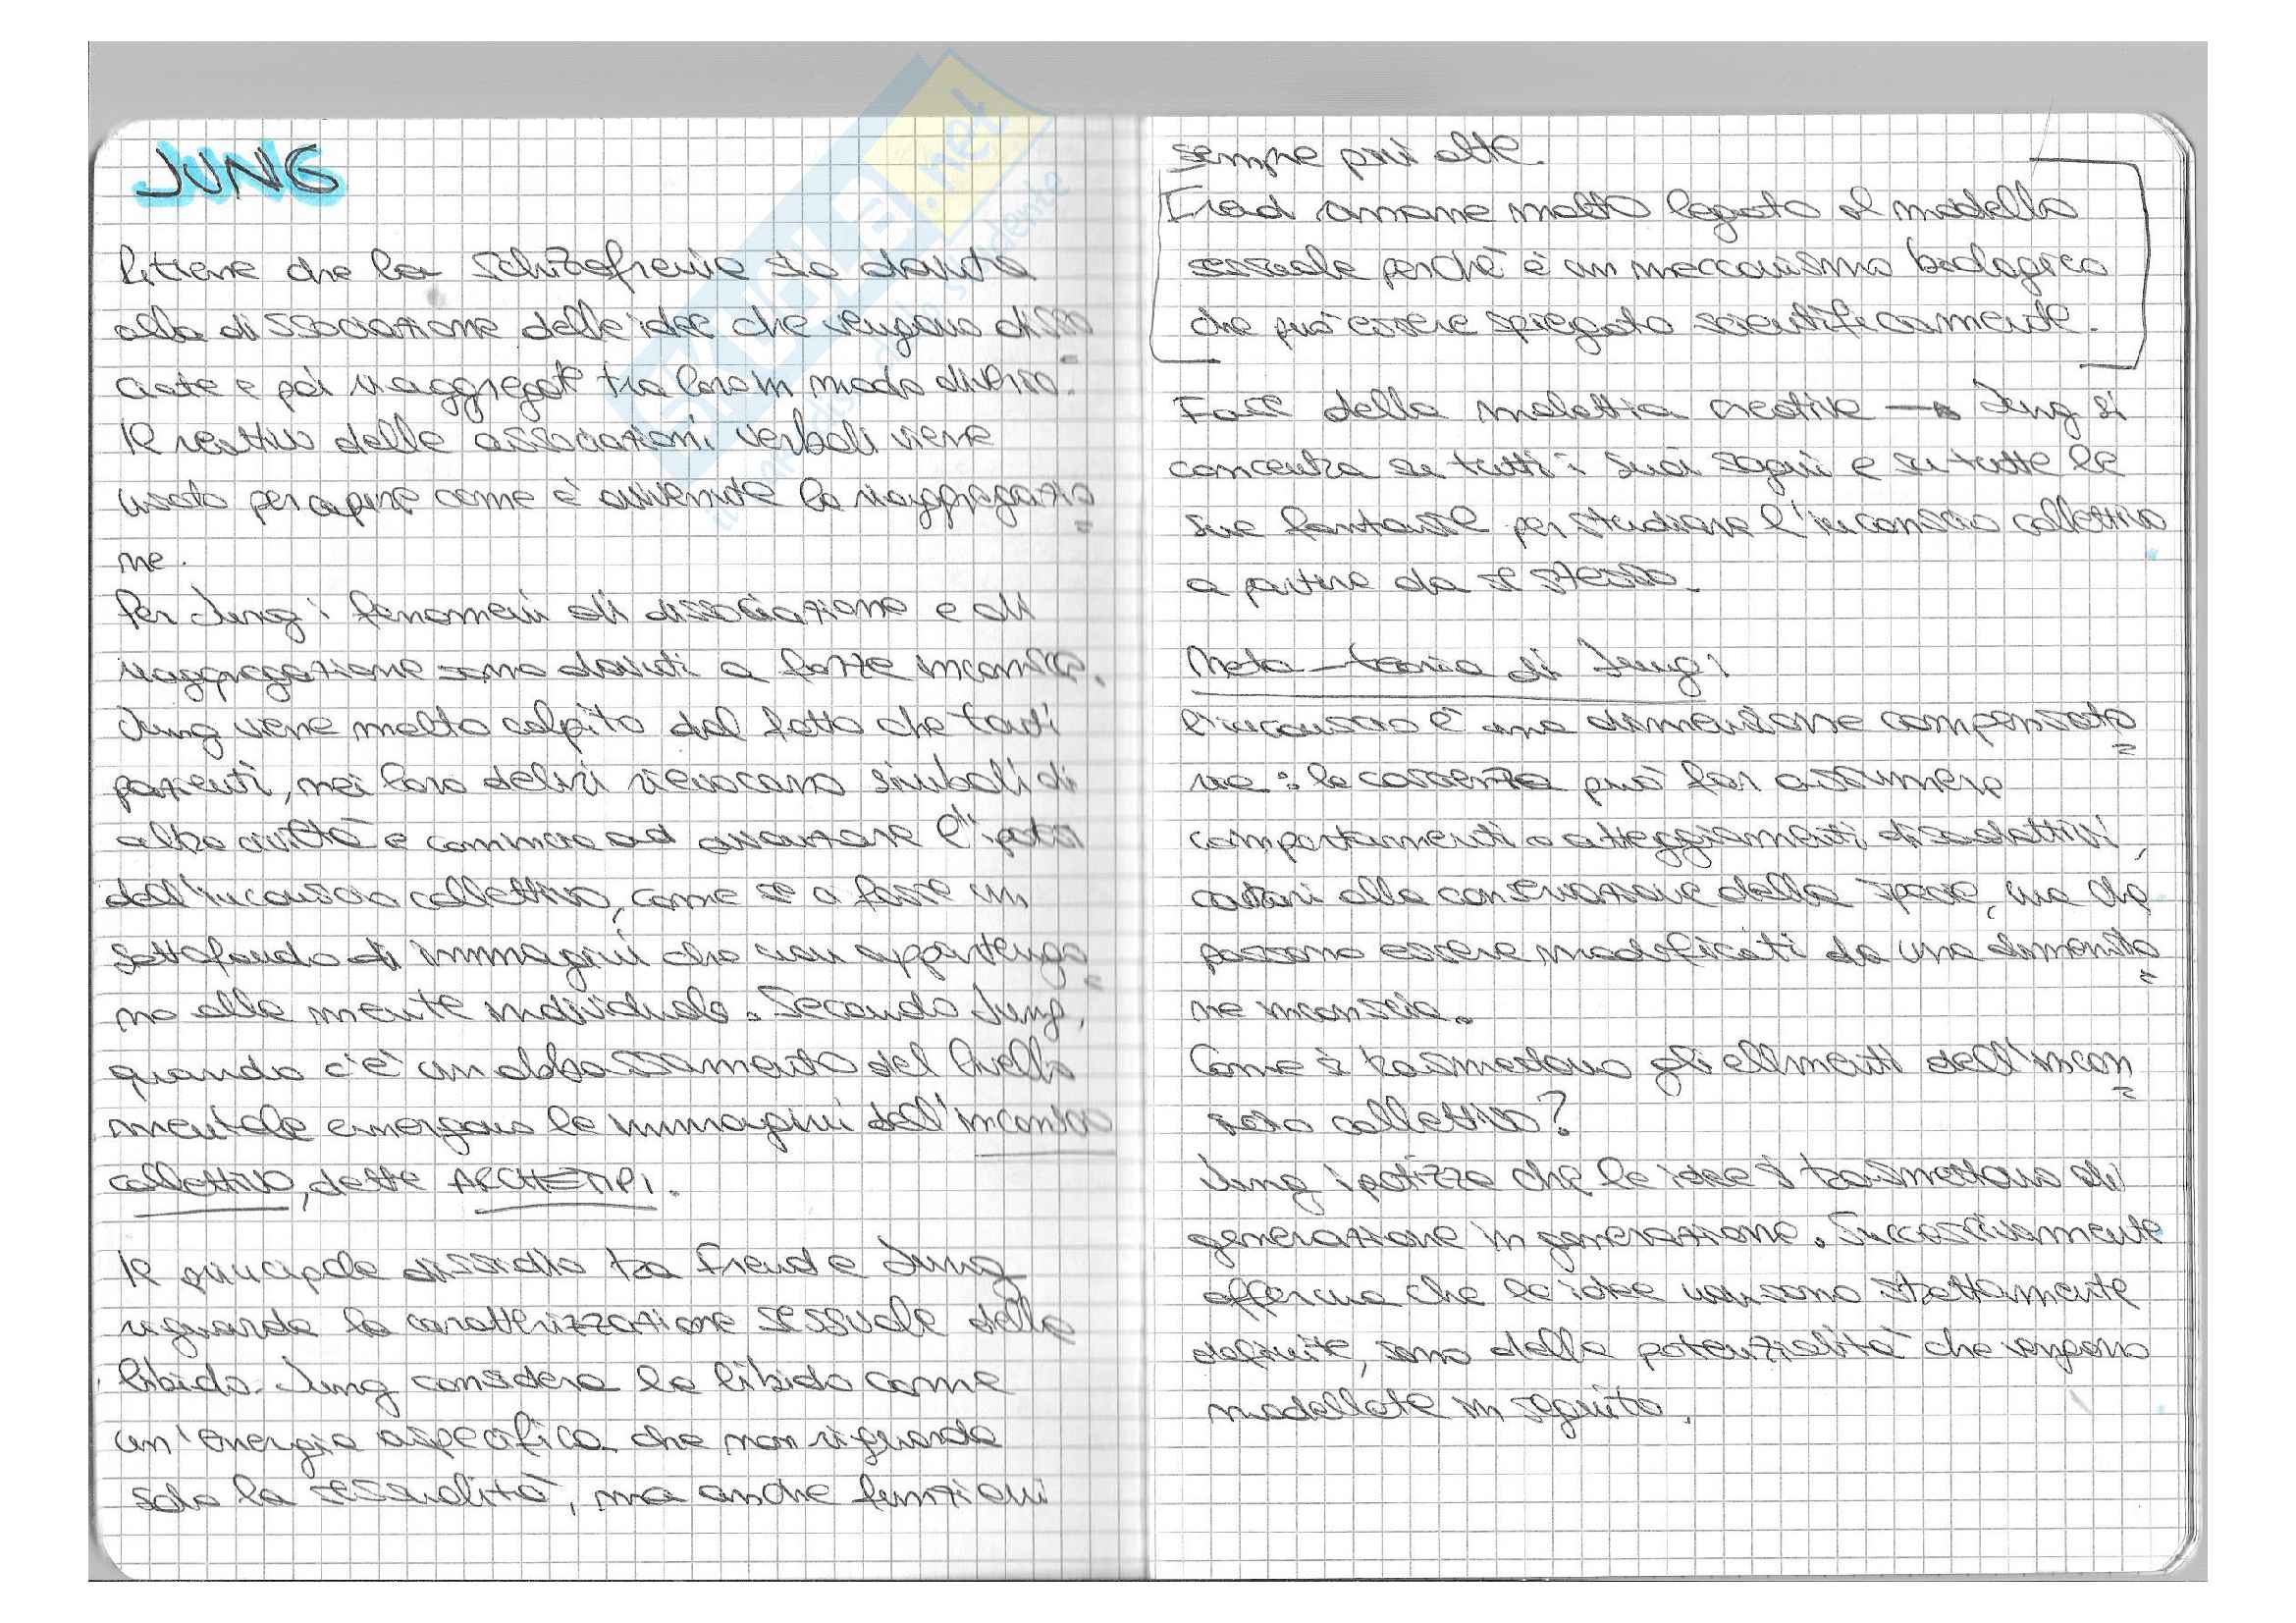 JUNG
Ritiene che la schizofrenia sia dovuta
alla dissociazione delle idee che vengono disso
ciate e poi riaggregate tra loro in modo diverso.
Il reattivo delle associazioni verbali viene
usato per capire come è avvenuta la riaggregazio
ne.
Per Jung i fenomeni di dissociazione e di
riaggregazione sono dovuti a forze inconsce.
Jung viene molto colpito dal fatto che tanti
pazienti, nei loro deliri rievocano simboli di
altre civiltà e comincia ad avanzare l'ipotesi
dell'inconscio collettivo, come se ci fosse un
sottofondo di immagini che non appartengo
no alla mente individuale. Secondo Jung,
quando c'è un abbassamento del livello
mentale emergono le immagini dell'inconscio
collettivo, dette ARCHETIPI.
Il principale dissidio tra Freud e Jung
riguarda la caratterizzazione sessuale della
libido. Jung considera la libido come
un'energia aspecifica che non riguarda
solo la sessualità, ma anche funzioni
sempre più alte.
rimane molto legato al modello
sessuale perché è un meccanismo biologico
che può essere spiegato scientificamente.
Fase della malattia creativa → Jung si
concentra su tutti i suoi sogni e su tutte le
sue fantasie per studiare l'inconscio collettivo
a partire da se stesso.
Meta-teoria di Jung:
l'inconscio è una dimensione compensato
ria: la coscienza può far assumere
comportamenti o atteggiamenti disadattivi,
contrari alla conservazione della specie, ma che
possono essere modificati da una dimensio
ne inconscia.
Come si trasmettono gli elementi dell'incon
scio collettivo?
Jung ipotizza che le idee si trasmettono di
generazione in generazione. Successivamente
afferma che le idee non sono strettamente
definite, sono delle potenzialità che vengono
modellate in seguito.
SKUOLA.net